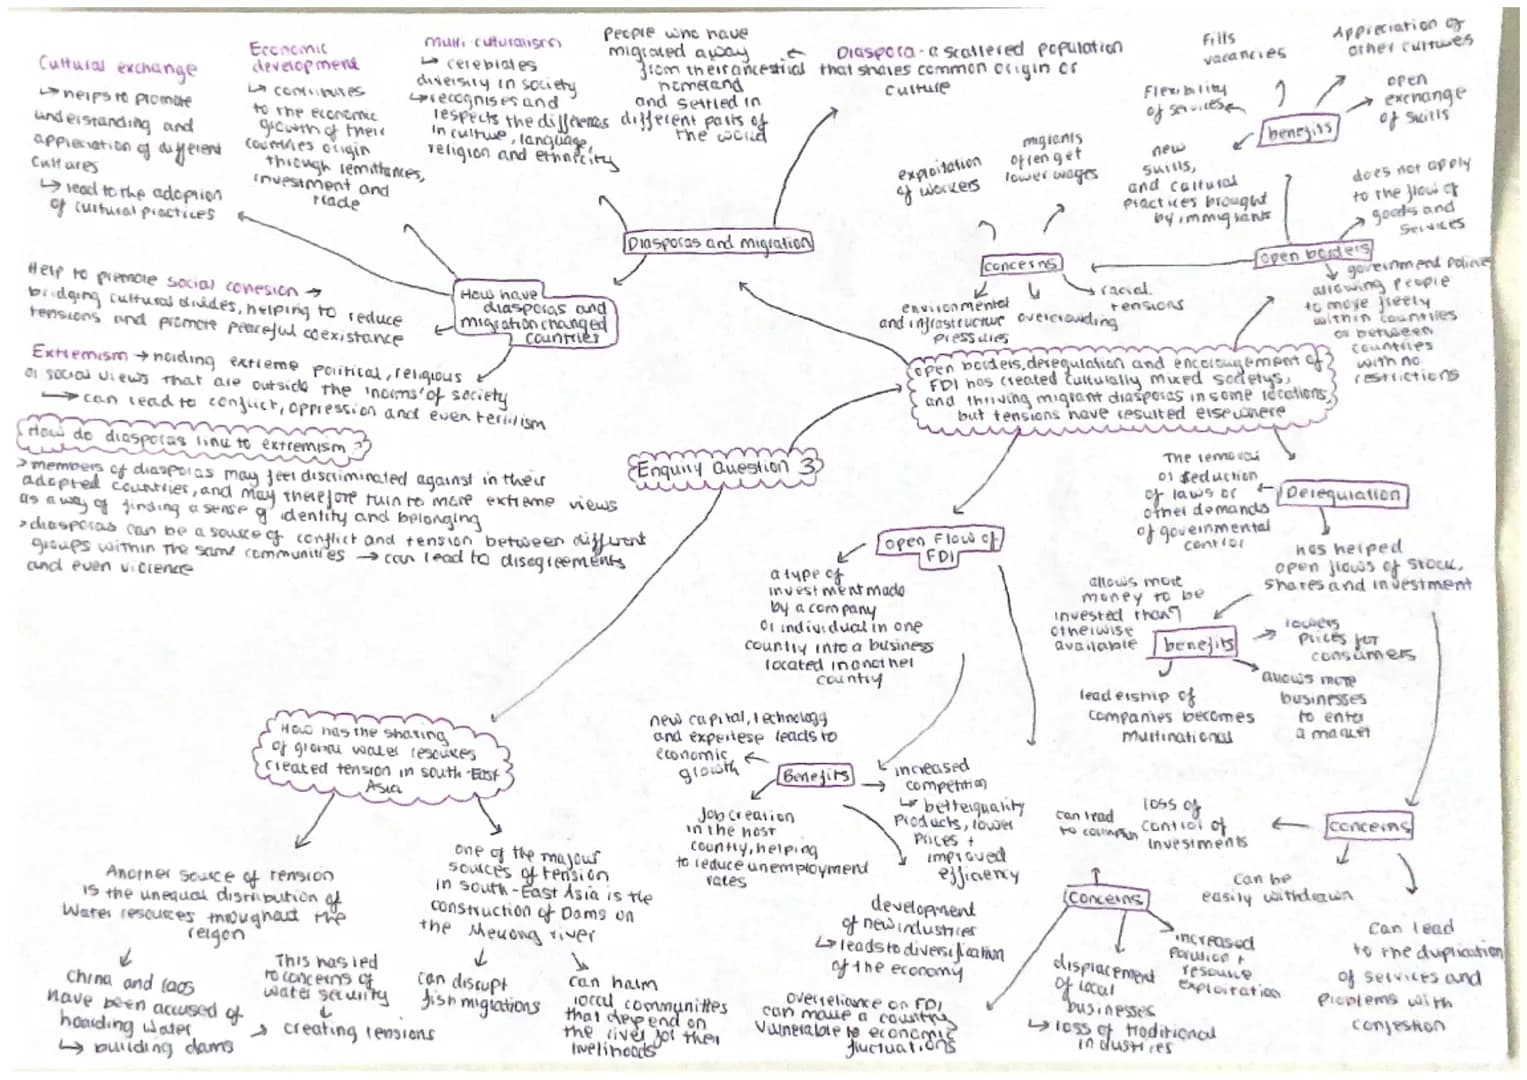 Cultural exchange
↳ helps to promote
understanding and
appreciation of different
cultures
↳ lead to the adoption
of cultural practices
Economic
development
↳ contributes
to the economic
growth of their
countries origin
through remittances,
investment and
trade
Multi culturalism
↳ celebrates
diversity in society
↳ recognises and
respects the difference
in culture, language,
religion and ethnicity
People who have
migrated away
from their ancestral
homeland
and settled in
different parts of
the world
Diaspora - a scattered population
that shares common origin or
culture
Diasporas and migration
How have
diasporas and
migration changed
countries
Help to promote social cohesion →
bridging cultural divides, helping to reduce
tensions and promote peaceful coexistance
Extremism → holding extreme political, religious
or social views that are outside the 'norms' of society
→ can lead to conflict, oppression and even terriism
How do diasporas link to extremism?
> members of diasporas may feel discriminated against in their
adopted countries, and may therefore turn to more extreme views
as a way of finding a sense of identity and belonging
> diasporas can be a source of conflict and tension between different
groups within the same communities → can lead to disagreements
and even violence
Enquiry Question 3
open borders, deregulation and encouragement of
FDI has created culturally mixed societys,
and thriving migrant diasporas in some locations,
but tensions have resulted elsewhere
open borders
government policies
allowing people
to move freely
within countries
or between
countries
with no
restrictions
does not apply
to the flow of
goods and
services
benefits
Flexibility
of services
Fills
vacancies
Appreciation of
other cultures
open
exchange
of skills
new
skills,
and cultural
practices brought
by immigrants
concerns
exploitation
of workers
migrants
often get
lower wages
racial
tensions
overcrowding
environmental
and infrastructure
pressures
Deregulation
The removal
or reduction
of laws or
other demands
of governmental
control
has helped
open flows of stock,
shares and investment
benefits
allows more
money to be
invested than
otherwise
available
lowers
prices for
consumers
allows more
businesses
to enter
a market
leadership of
companies becomes
multinational
concerns
loss of
control of
investments
can be
easily withdrawn
can lead
to the duplication
of services and
problems with
congestion
open flow of
FDI
a type of
investment made
by a company
or individual in one
country into a business
located in another
country
Benefits
new capital, technology
and expertese leads to
economic
growth
Job creation
in the host
country, helping
to reduce unemployment
rates
increased
competition
↳ better quality
products, lower
prices +
improved
efficiency
development
of new industries
↳ leads to diversification
of the economy
concerns
can lead
to corruption
increased
pollution +
resource
exploitation
displacement
of local
businesses
↳ loss of traditional
industries
overreliance on FDI
can make a country
vulnerable to economic
fluctuations
How has the sharing
of global water resources
created tension in south-East
Asia
Another source of tension
is the unequal distribution of
water resources throughout the
reigon
China and laos
have been accused of
hoarding water
↳ building dams
This has led
to concerns of
water security
→ creating tensions
one of the majour
sources of tension
in south-East Asia is the
construction of Dams on
the Mekong river
can disrupt
fish migrations
can harm
local communities
that depend on
the river for their
livelihoods